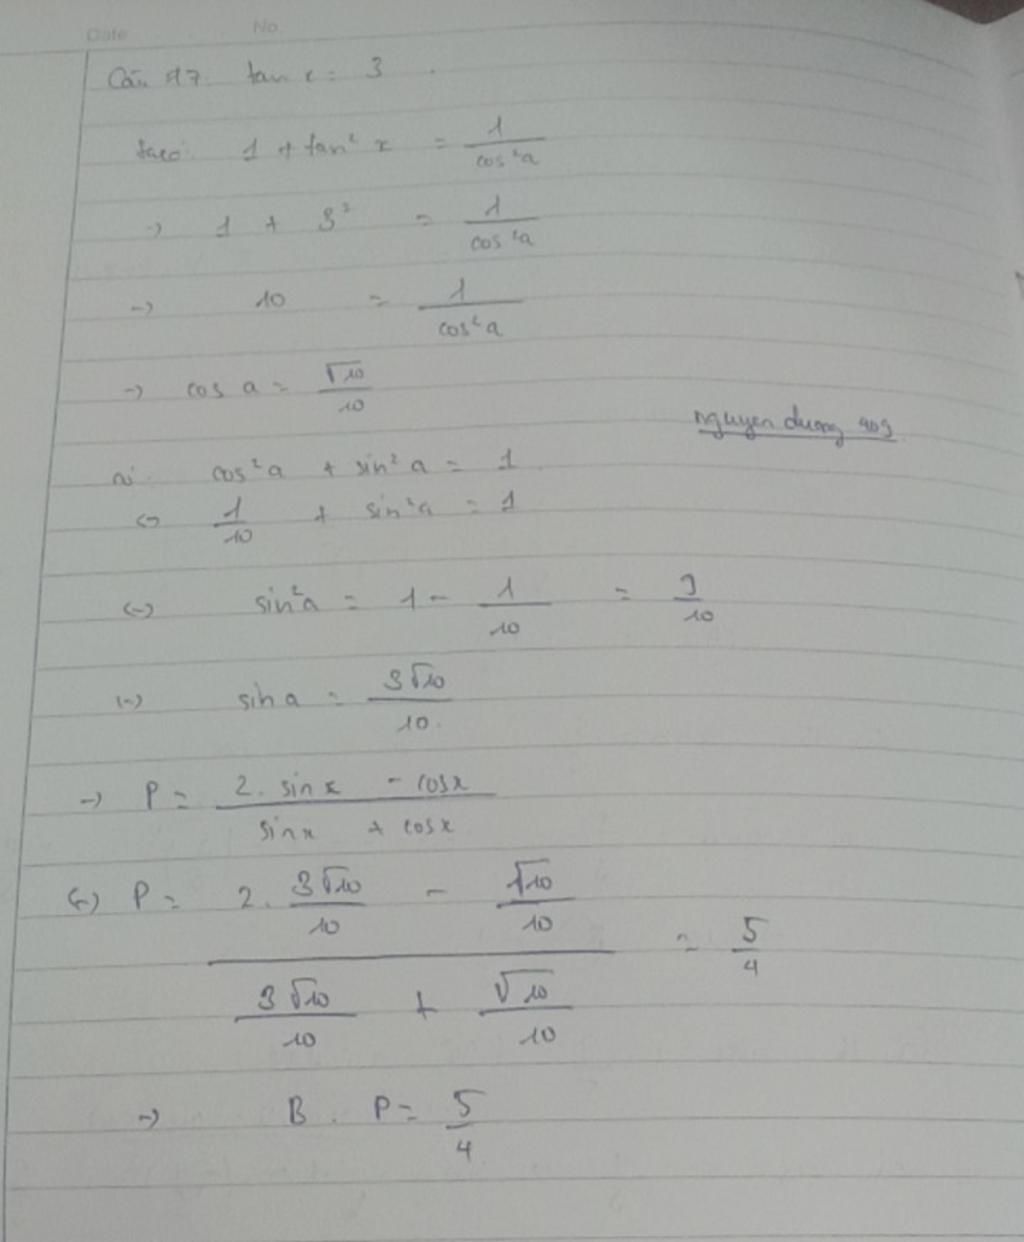 Date No.
Câu 17. tan x = 3.
ta có: 1 + tan² x = 1/cos²a
→ 1 + 3² = 1/cos²a
→ 10 = 1/cos²a
→ cos a = √10/10
nguyen duong
cos²a + sin²a = 1
<-> 1/10 + sin²a = 1
<-> sin²a = 1 - 1/10 = 9/10
<-> sin a = 3√10/10.
→ P = (2. sin x - cos x)/(sin x + cos x)
<-> P = (2. 3√10/10 - √10/10)/(3√10/10 + √10/10) = 5/4
→ B. P = 5/4